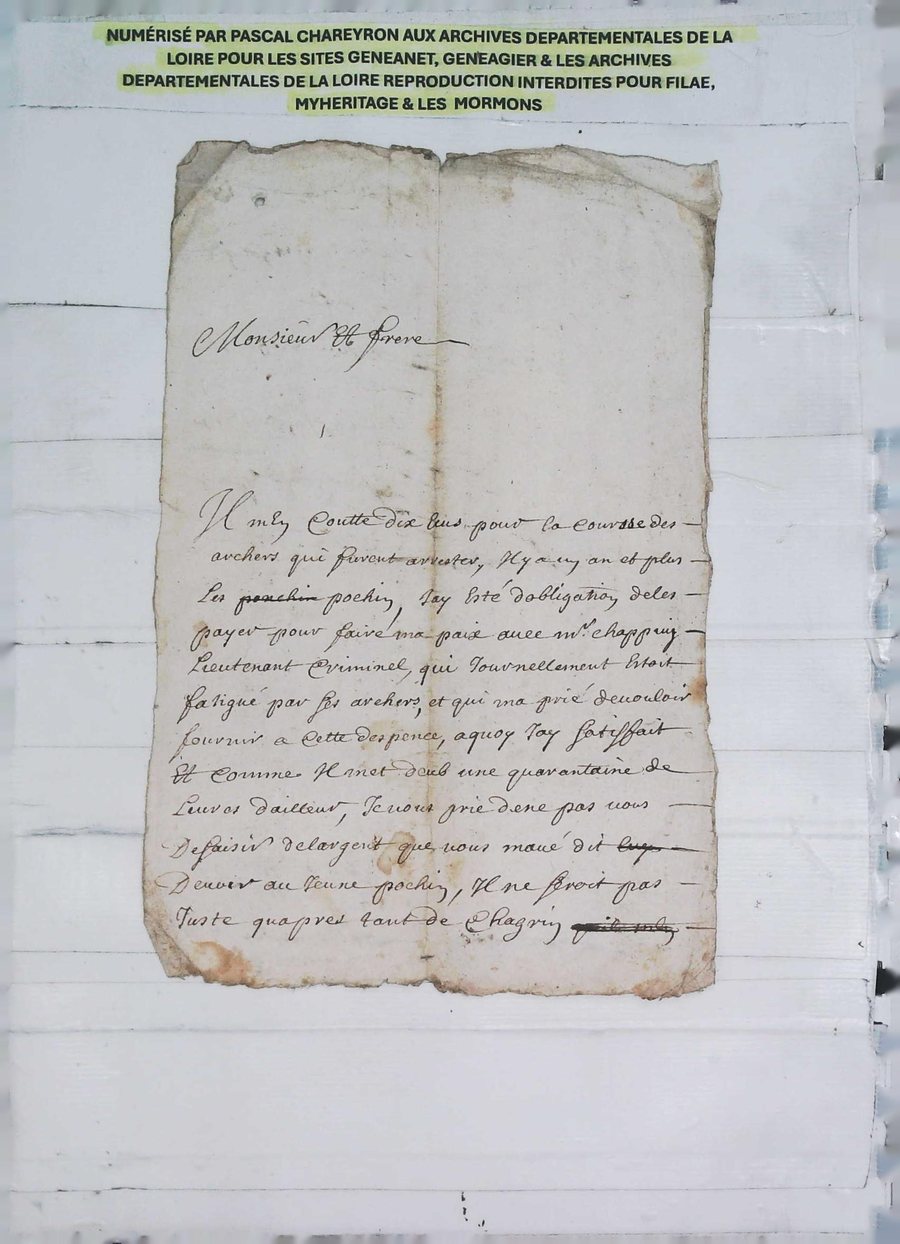 NUMÉRISÉ PAR PASCAL CHAREYRON AUX ARCHIVES DEPARTEMENTALES DE LA
LOIRE POUR LES SITES GENEANET, GENEAGIER & LES ARCHIVES
DEPARTEMENTALES DE LA LOIRE REPRODUCTION INTERDITES POUR FILAE,
MYHERITAGE & LES MORMONS
Monsieur Et frere
Il mEn Coutte dix Eus pour la Course des
archers qui furent arrester, Il y a un an et plus
Les ponchin pochin, Jay Esté dobligation deles
payer pour faire ma paix avec mr. chappuy
Lieutenant Criminel, qui Journellement Estoit
fatigué par ses archers, et qui ma prié devouloir
fournir a Cette despence, aquoy Jay satisfait
Et comme Il met deub une quarantaine de
Livres dailleur, Je vous prie dene pas vous
Desaisir delargent que vous mavé dit
Devoir au Jeune pochin, Il ne seroit pas
Juste quapres tant de Chagrin